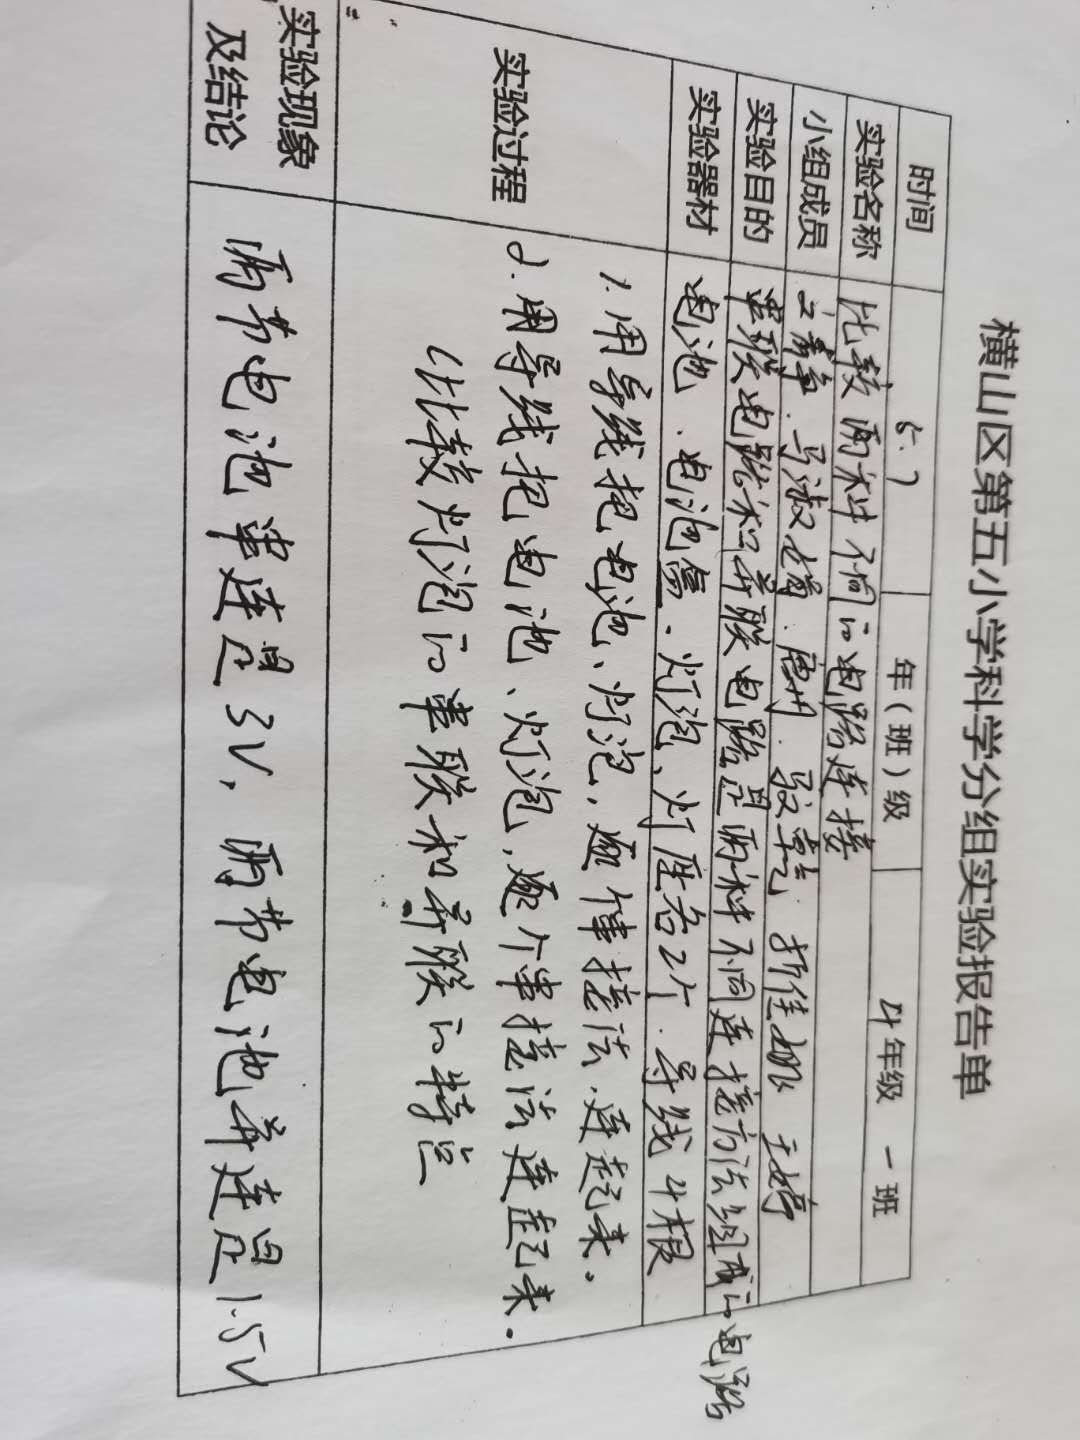 横山区第五小学科学分组实验报告单
时间 5.7 年（班）级 4年级 一班
实验名称 比较两种不同的电路连接
小组成员 马淑 王婷
实验目的 串联电路和并联电路是两种不同连接方法组成的电路
实验器材 电池、电池盒、灯泡、灯座各2个、导线4根
实验过程 1.用导线把电池、灯泡，逐 接法、连起来。
2.用导线把电池、灯泡，逐个串接法连起来。
（比较灯泡的串联和并联的特点
实验现象 两节电池串连是3V，两节电池并连是1.5V
及结论